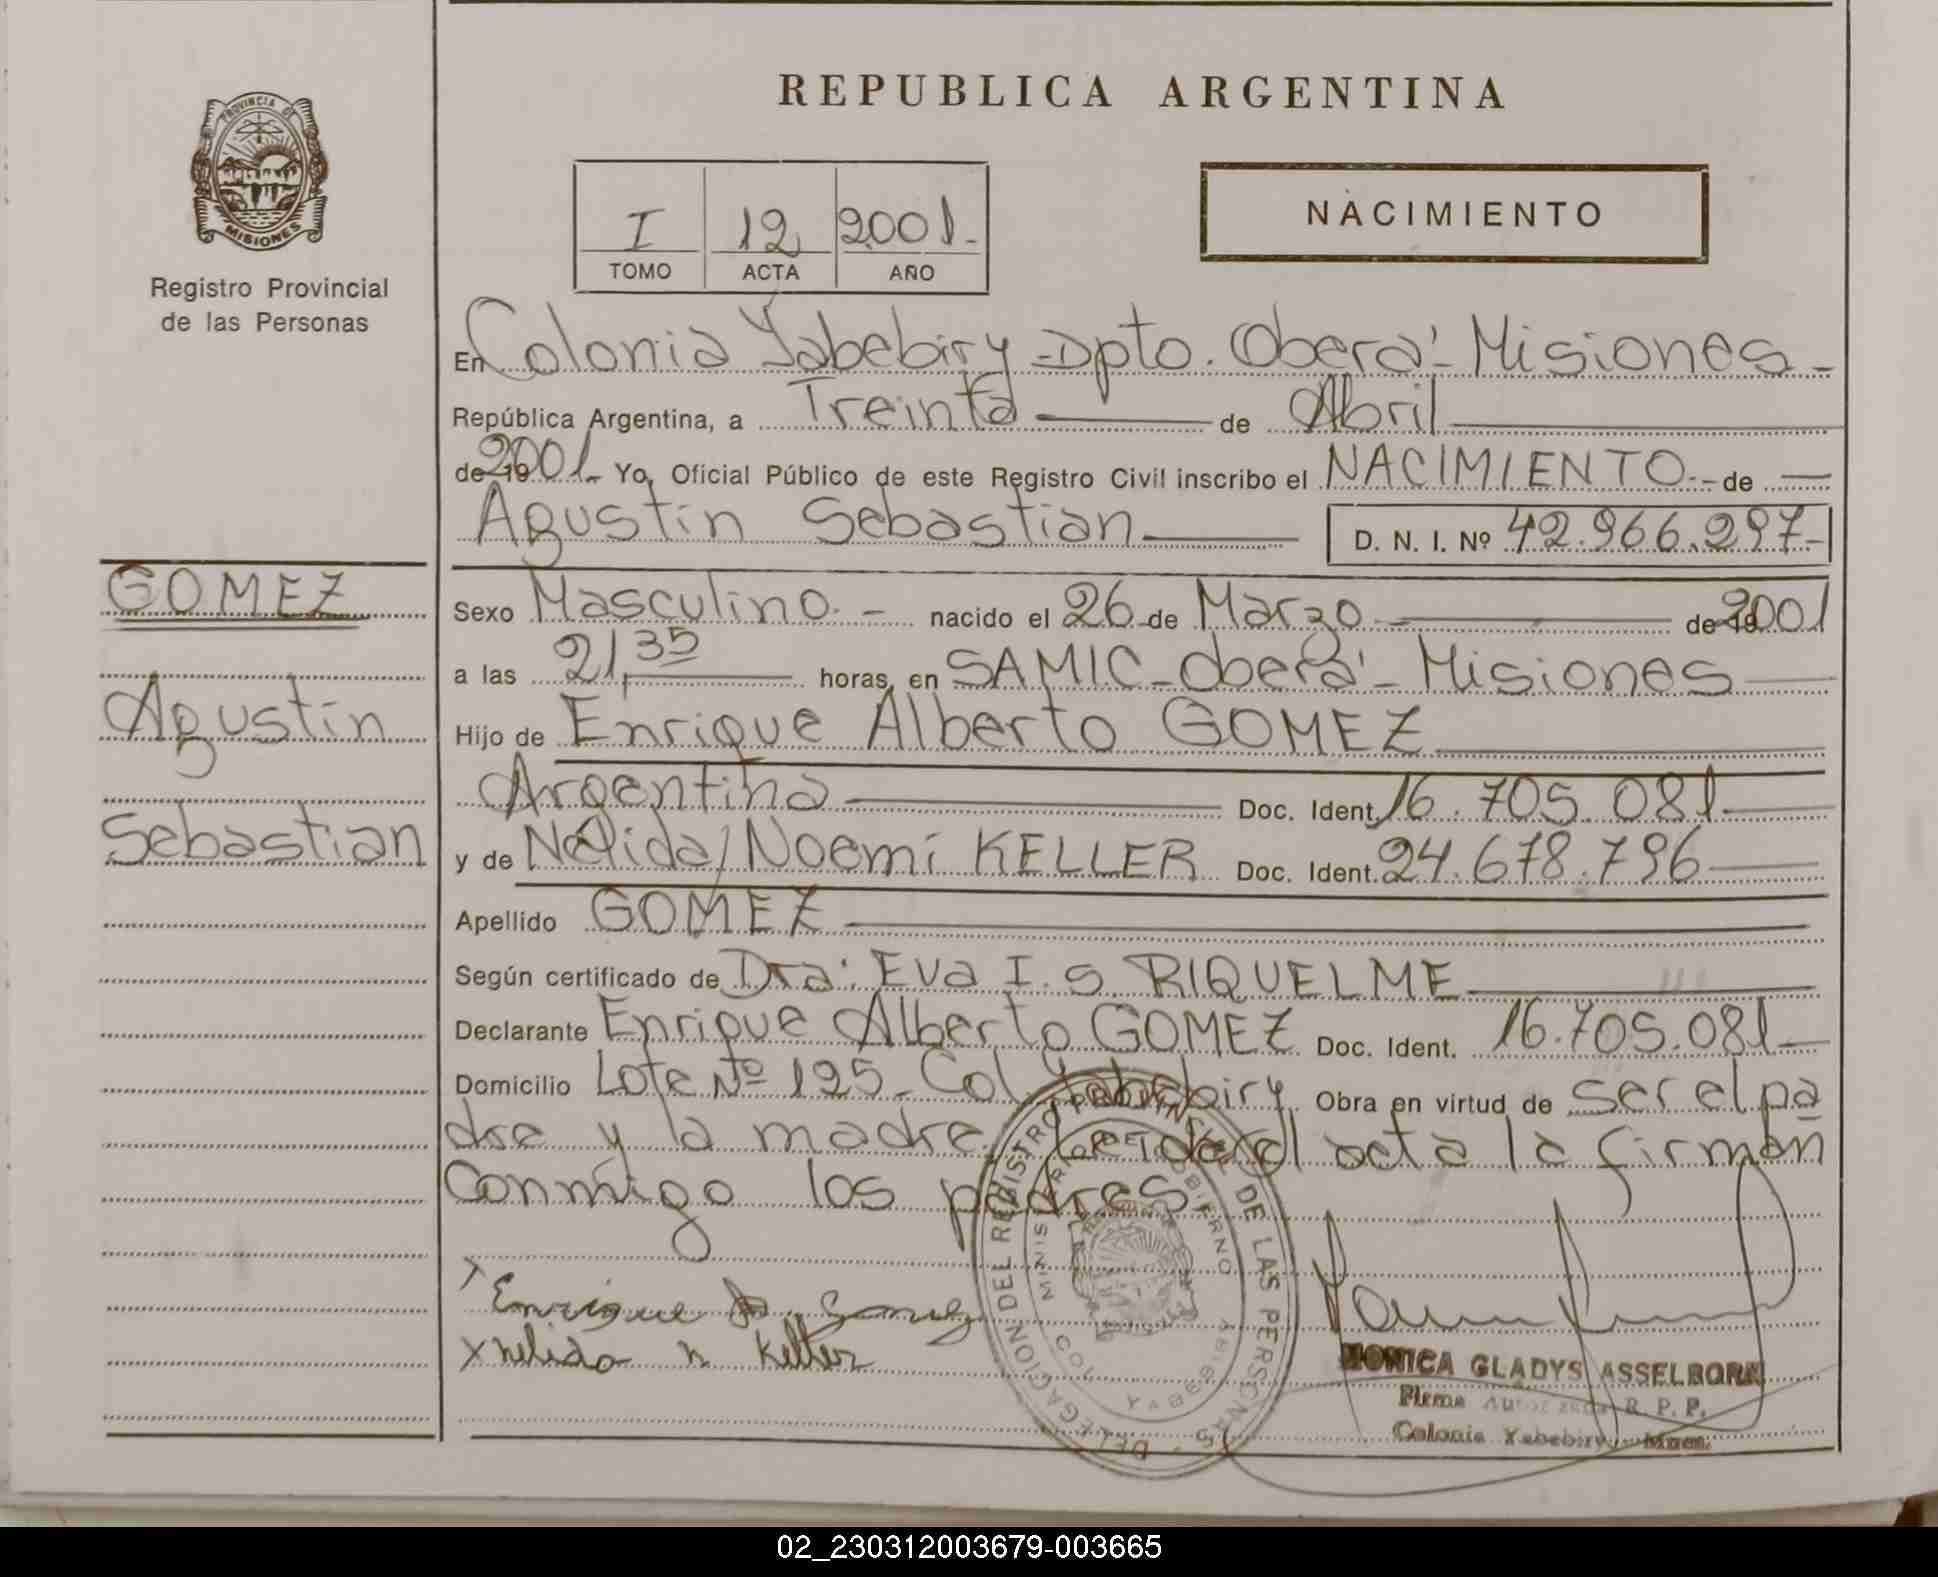 PROVINCIA DE
MISIONES
Registro Provincial
de las Personas
GOMEZ
Agustin
Sebastian
REPUBLICA ARGENTINA
I 12 2001.-
TOMO ACTA AÑO
NACIMIENTO
En Colonia Yabebiry - Dpto. Oberá - Misiones -
República Argentina, a Treinta de Abril
de 2001.- Yo, Oficial Público de este Registro Civil inscribo el NACIMIENTO.- de
Agustin Sebastian D. N. I. Nº 42.966.297-
Sexo Masculino. - nacido el 26 de Marzo de 2001
a las 21,35 horas, en SAMIC - Oberá - Misiones
Hijo de Enrique Alberto GOMEZ
Argentina Doc. Ident. 16.705.081
y de Nélida/Noemí KELLER Doc. Ident. 24.678.796
Apellido GOMEZ
Según certificado de Dra: Eva I. S. RIQUELME
Declarante Enrique Alberto GOMEZ Doc. Ident. 16.705.081
Domicilio Lote Nº 125 - Col Yabebiry Obra en virtud de ser el pa
dre y la madre. Leida el acta la firman
Conmigo los padres.
x Enrique A Gomez
x Nelida N Keller
DELEGACION DEL REGISTRO PROVINCIAL DE LAS PERSONAS
MINISTERIO DE GOBIERNO
COL YABEBIRY
MONICA GLADYS ASSELBORN
Firma Autorizada R. P. P.
Colonia Yabebiry - Mnes.
02_230312003679-003665